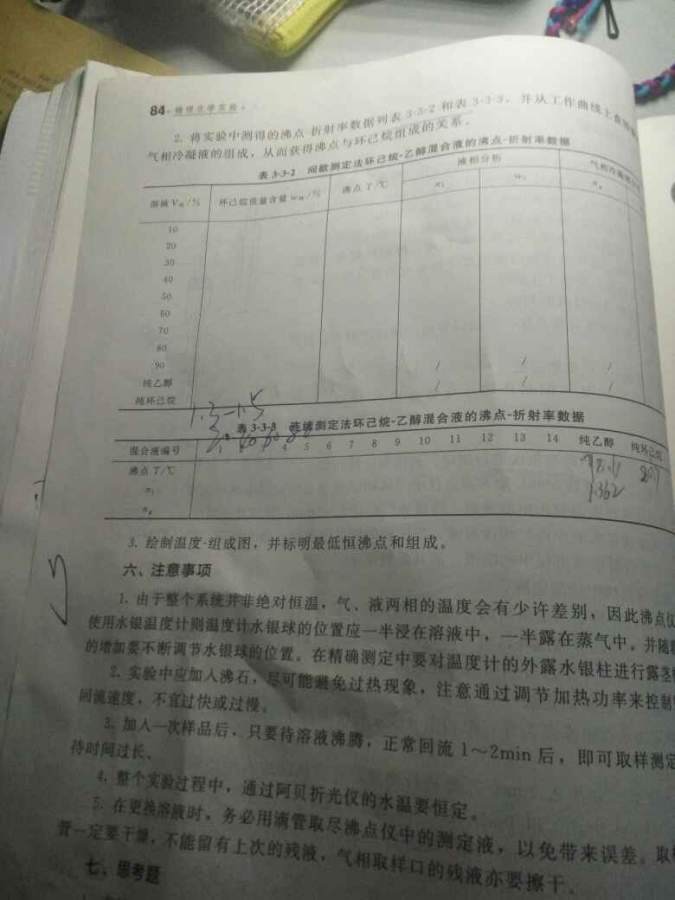 84 · 物理化学实验 ·
2. 将实验中测得的沸点-折射率数据列表 3-3-2 和表 3-3-3，并从工作曲线上查
气相冷凝液的组成，从而获得沸点与环己烷组成的关系。
表 3-3-2 间歇测定法环己烷-乙醇混合液的沸点-折射率数据
沸点 T/℃ 液相分析 气相冷凝
环己烷质量含量
10
20
30
40
50
60
70
80
90 / / /
纯乙醇 / / /
纯环己烷
1.3-1.5
表 3-3-3 连续测定法环己烷-乙醇混合液的沸点-折射率数据
混合液编号 1 4 5 6 7 8 9 10 11 12 13 14 纯乙醇 纯环己烷
沸点 T/℃
1.362
3. 绘制温度-组成图，并标明最低恒沸点和组成。
六、注意事项
1. 由于整个系统并非绝对恒温，气、液两相的温度会有少许差别，因此沸点仪
使用水银温度计则温度计水银球的位置应一半浸在溶液中，一半露在蒸气中。并随
的增加要不断调节水银球的位置。在精确测定中要对温度计的外露水银柱进行露茎
2. 实验中应加入沸石，尽可能避免过热现象，注意通过调节加热功率来控制
回流速度，不宜过快或过慢。
3. 加入一次样品后，只要待溶液沸腾，正常回流 1～2min 后，即可取样测定
待时间过长。
4. 整个实验过程中，通过阿贝折光仪的水温要恒定。
5. 在更换溶液时，务必用滴管取尽沸点仪中的测定液，以免带来误差。取
管一定要干燥，不能留有上次的残液，气相取样口的残液亦要擦干。
七、思考题